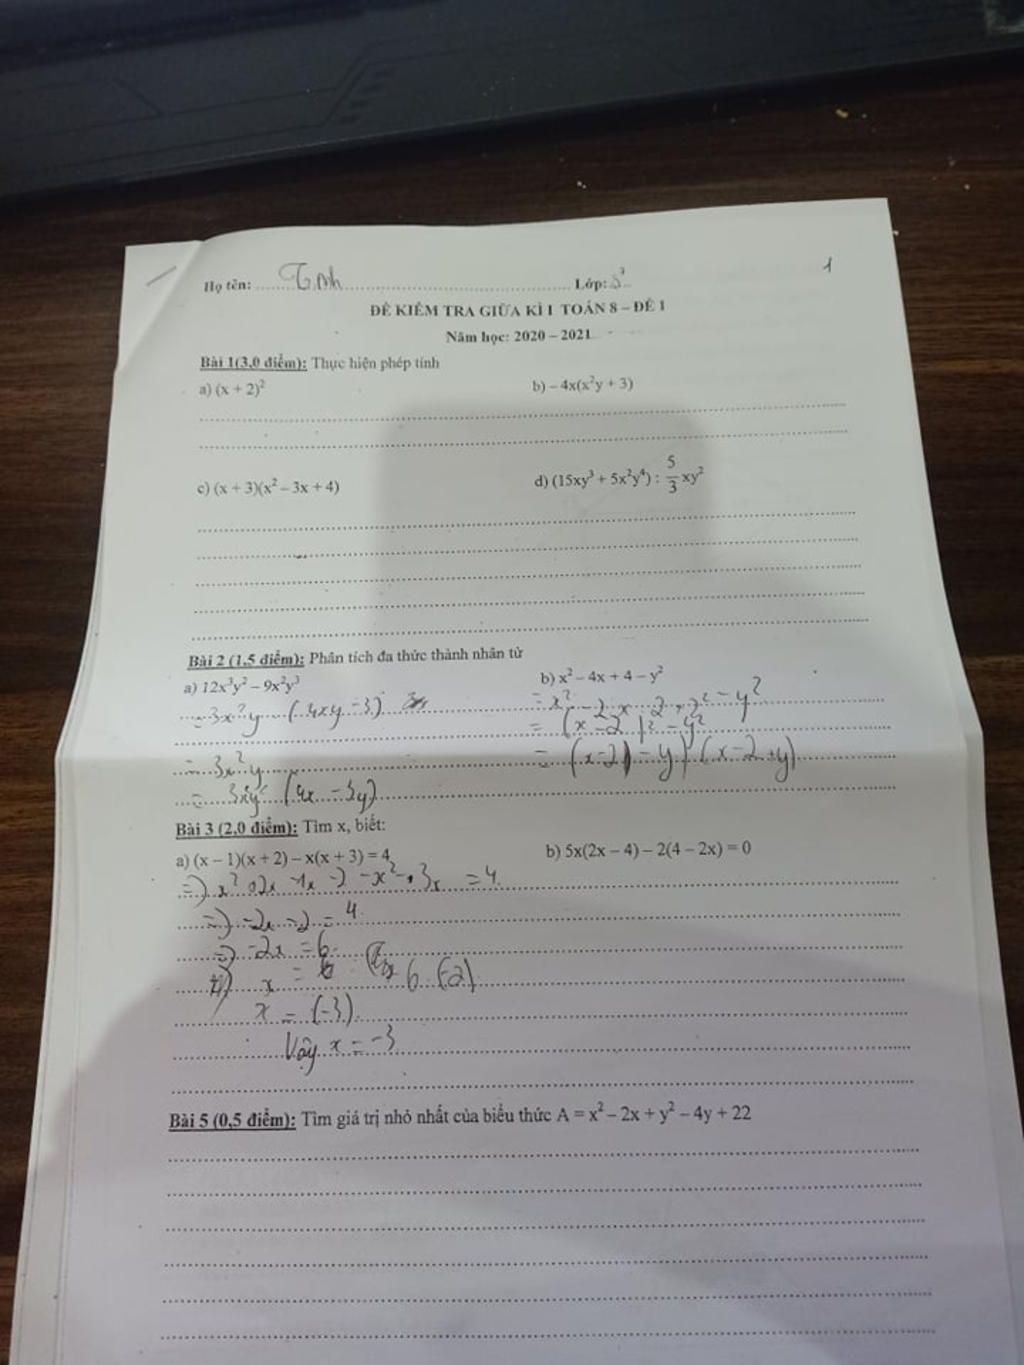 Họ tên: ........ Lớp: ........ 1
ĐỀ KIỂM TRA GIỮA KÌ I TOÁN 8 – ĐỀ 1
Năm học: 2020 – 2021
Bài 1(3,0 điểm): Thực hiện phép tính
a) (x + 2)² b) – 4x(x²y + 3)
c) (x + 3)(x² – 3x + 4) d) (15xy³ + 5x²y⁴) : 5/3 xy²
Bài 2 (1,5 điểm): Phân tích đa thức thành nhân tử
a) 12x³y² – 9x²y³ b) x² – 4x + 4 – y²
= 3x²y (4xy – 3) = x² – 2.x.2 + 2² – y²
= (x – 2)² – y²
= 3x²y = (x-2) – y) (x – 2 + y)
= (4x – 3y)
Bài 3 (2,0 điểm): Tìm x, biết:
a) (x – 1)(x + 2) – x(x + 3) = 4 b) 5x(2x – 4) – 2(4 – 2x) = 0
=> x² + 2x – 1x – 2 – x² – 3x = 4
=> -2x – 2 = 4
=> -2x = 6
x = 6 : (-2)
x = (-3)
Vậy x = -3
Bài 5 (0,5 điểm): Tìm giá trị nhỏ nhất của biểu thức A = x² – 2x + y² – 4y + 22